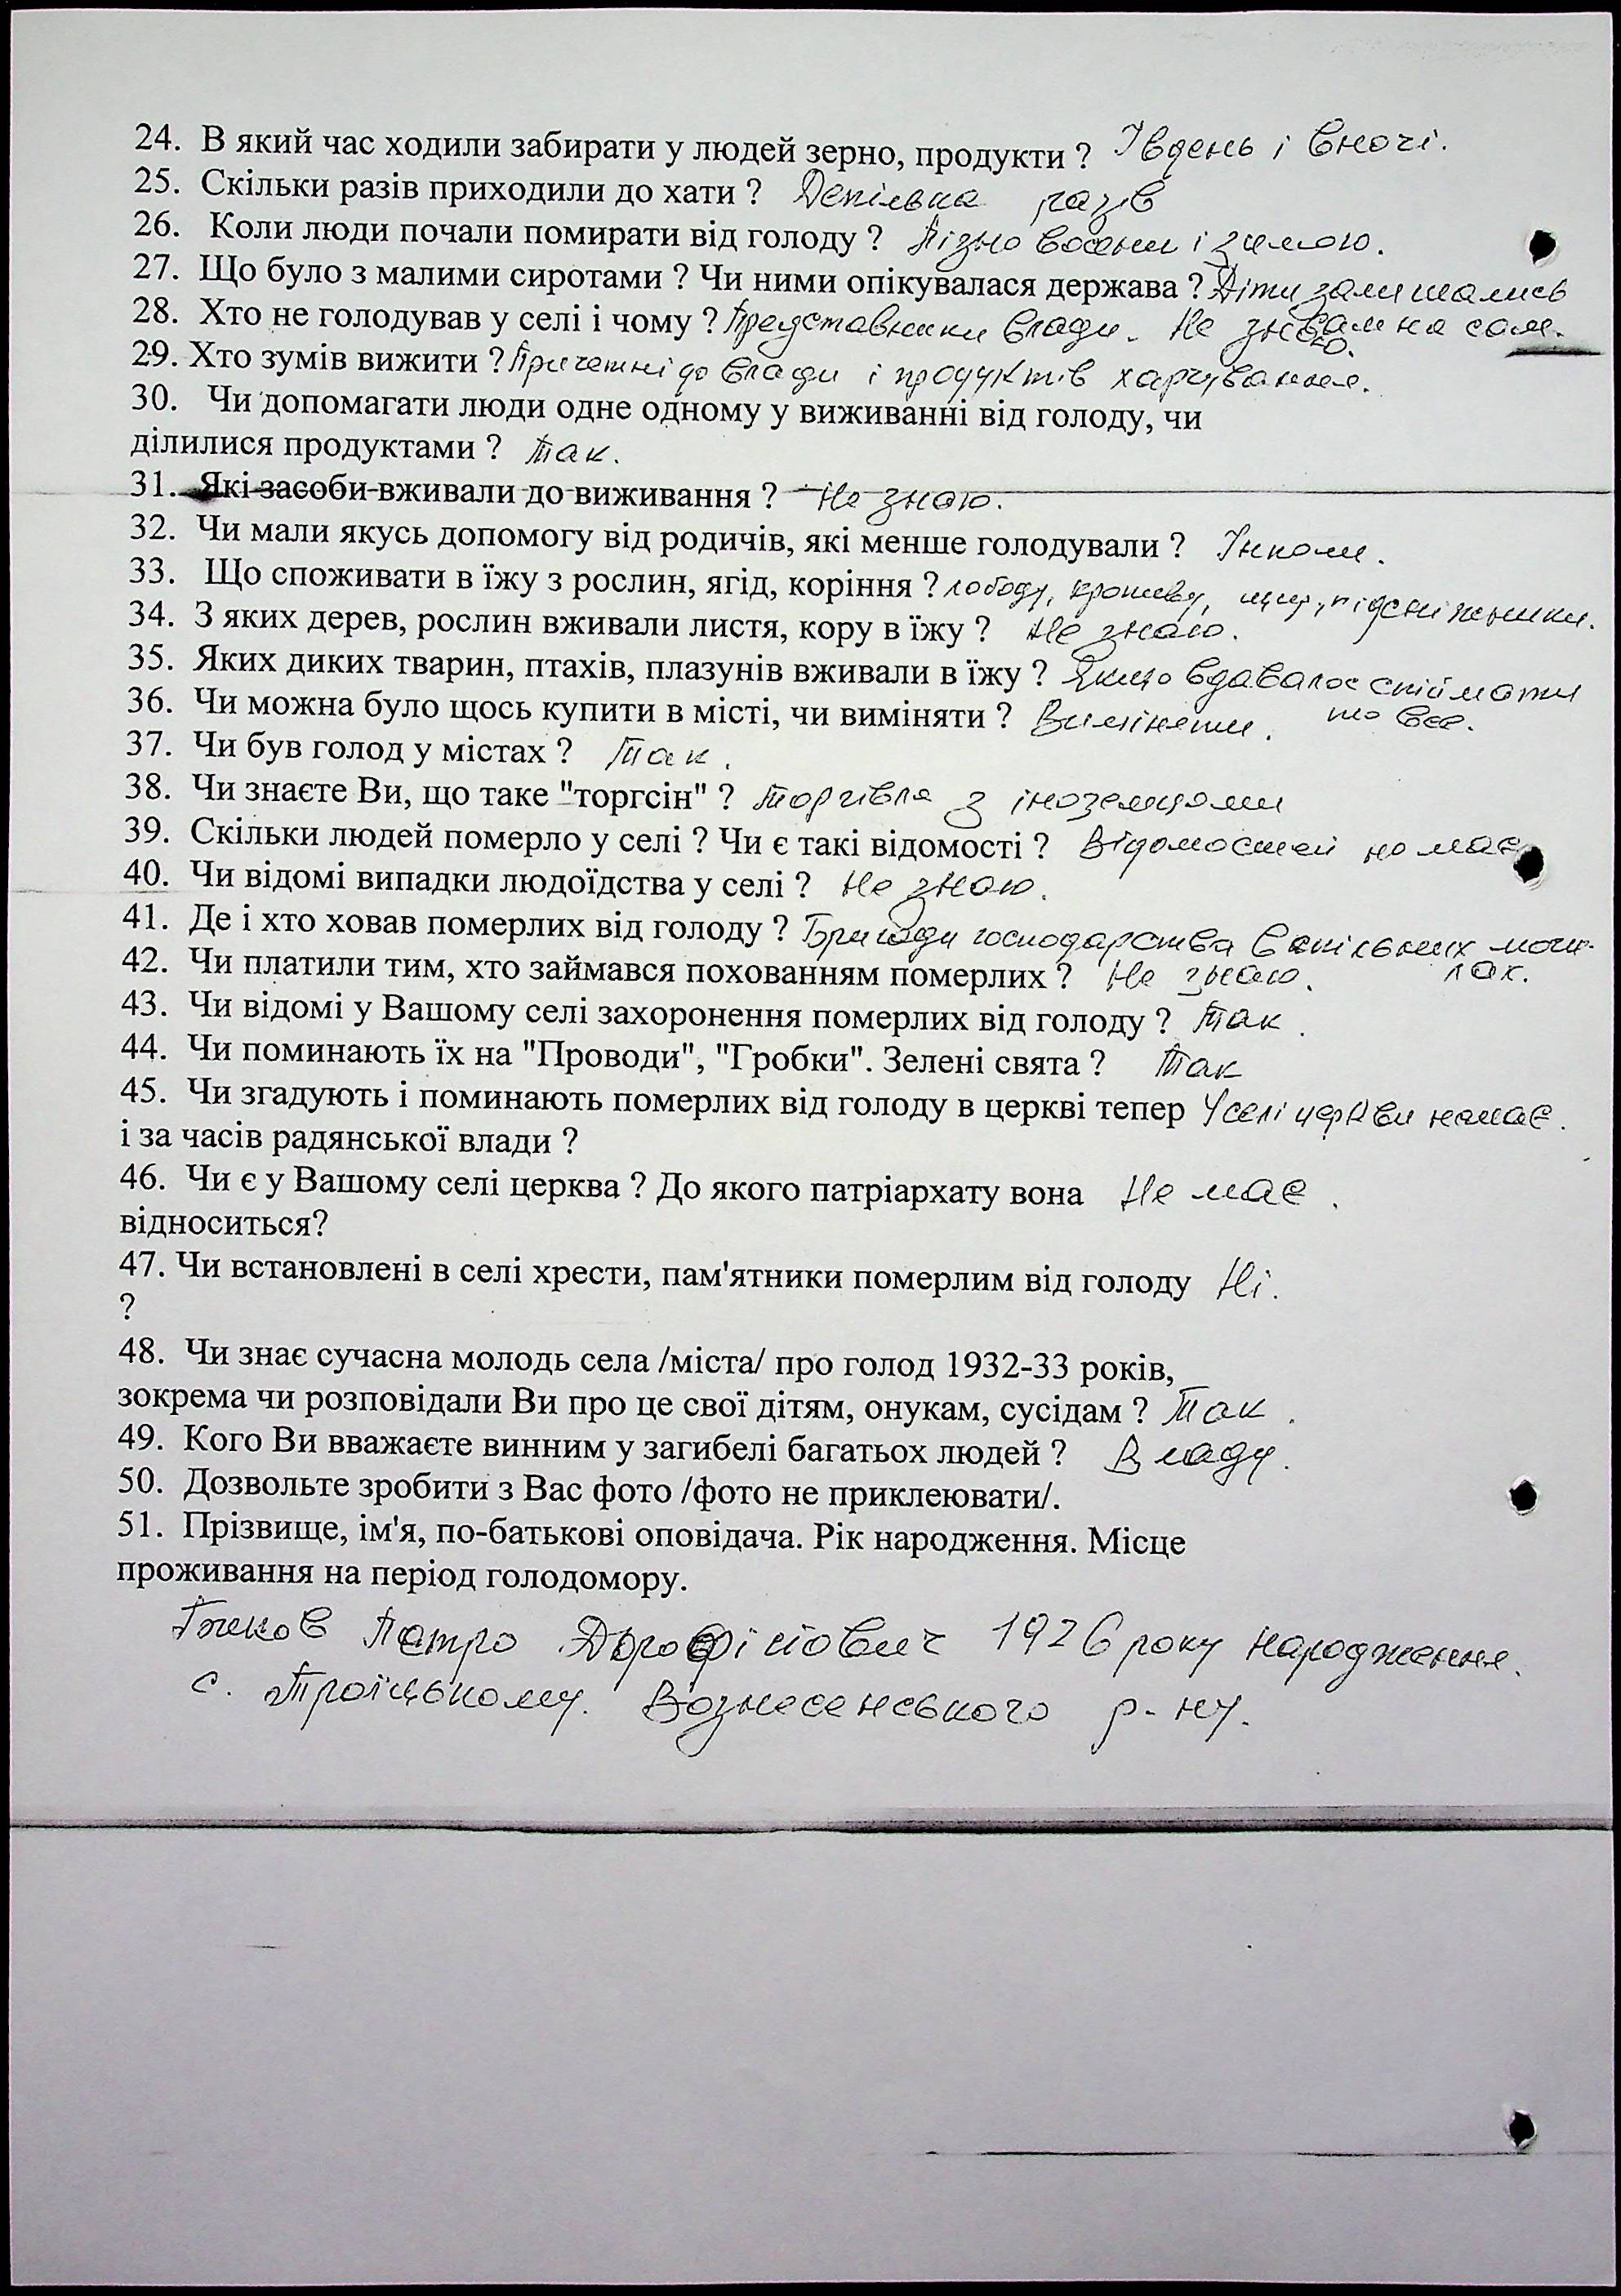 24. В який час ходили забирати у людей зерно, продукти ? І вдень і вночі.
25. Скільки разів приходили до хати ? Декілька разів
26. Коли люди почали помирати від голоду ? Пізно восени і зимою.
27. Що було з малими сиротами ? Чи ними опікувалася держава ? Діти залишались
28. Хто не голодував у селі і чому ? Представники влади. Не знаю. сам на сам.
29. Хто зумів вижити ? Причетні до влади і продуктів харчування.
30. Чи допомагати люди одне одному у виживанні від голоду, чи
ділилися продуктами ? Так.
31. Які засоби вживали до виживання ? Не знаю.
32. Чи мали якусь допомогу від родичів, які менше голодували ? Інколи.
33. Що споживати в їжу з рослин, ягід, коріння ? лободу, кропиву, щир, підсніжники.
34. З яких дерев, рослин вживали листя, кору в їжу ? Не знаю.
35. Яких диких тварин, птахів, плазунів вживали в їжу ? Якщо вдавалос спіймати
36. Чи можна було щось купити в місті, чи виміняти ? Виміняти. то все.
37. Чи був голод у містах ? Так.
38. Чи знаєте Ви, що таке "торгсін" ? Торгівля з іноземцями
39. Скільки людей померло у селі ? Чи є такі відомості ? Відомостей немає
40. Чи відомі випадки людоїдства у селі ? Не знаю.
41. Де і хто ховав померлих від голоду ? Бригади господарства в спільних моги-
42. Чи платили тим, хто займався похованням померлих ? Не знаю. лах.
43. Чи відомі у Вашому селі захоронення померлих від голоду ? Так.
44. Чи поминають їх на "Проводи", "Гробки". Зелені свята ? Так
45. Чи згадують і поминають померлих від голоду в церкві тепер У селі церкви немає.
і за часів радянської влади ?
46. Чи є у Вашому селі церква ? До якого патріархату вона Не має.
відноситься?
47. Чи встановлені в селі хрести, пам'ятники померлим від голоду Ні.
?
48. Чи знає сучасна молодь села /міста/ про голод 1932-33 років,
зокрема чи розповідали Ви про це свої дітям, онукам, сусідам ? Так.
49. Кого Ви вважаєте винним у загибелі багатьох людей ? Владу.
50. Дозвольте зробити з Вас фото /фото не приклеювати/.
51. Прізвище, ім'я, по-батькові оповідача. Рік народження. Місце
проживання на період голодомору.
Петро 1926 року народження.
с. Троїцькому. Вознесенського р-ну.